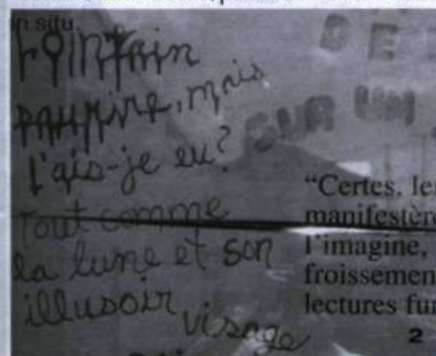 in situ
lointain
mais
l'ais-je eu?
Tout comme
la lune et son
illusoir
visage
DE
SUR UM
"Certes, les
manifestère
l'imagine,
froissemen
lectures fur
2